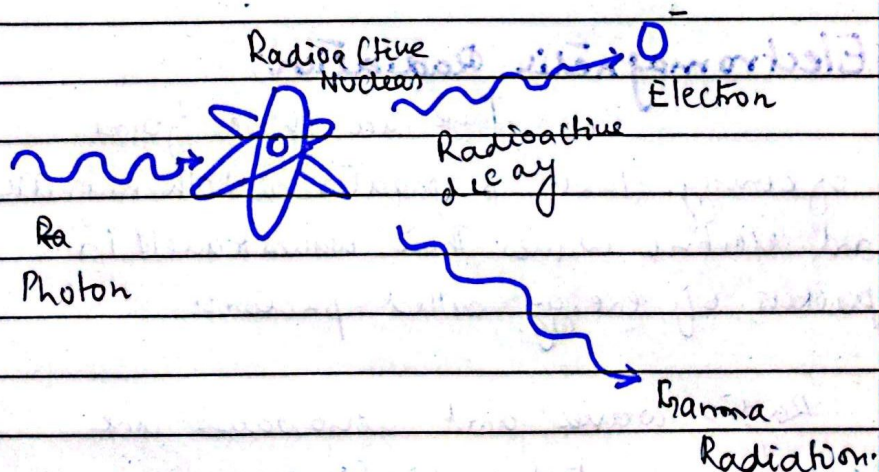 Radioactive
Nucleus
Electron
Radioactive
decay
Ra
Photon
Gamma
Radiation.